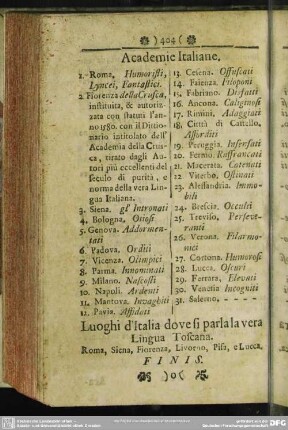 ) 404 (
Academie Italiane.
1. Roma, Humoristi,
Lyncei, Fantastici.
2. Fiorenza della Crusca,
instituita, & autoriz-
zata con statuti l'an-
no 1580. con il Dittio-
nario intitolato dell'
Academia della Crus-
ca, tirato dagli Au-
tori più eccellenti del
seculo di purità, e
norma della vera Lin-
gua Italiana.
3. Siena, gl' Intronati
4. Bologna, Otiosi
5. Genova. Addormen-
tati
6. Padova. Orditi
7. Vicenza. Olimpici
8. Parma. Innominati
9. Milano. Nascosti
10. Napoli. Ardenti
11. Mantova. Invaghiti
12. Pavia. Affidati
13. Cesena. Offuscati
14. Faienza. Filoponi
15. Fabriano. Disfatti
16. Ancona. Caliginosi
17. Rimini. Adaggiati
18. Città di Castello.
Assorditi
19. Peruggia. Insensati
20. Fermo. Raffrancati
21. Macerata. Catenati
22. Viterbo. Ostinati
23. Alessandria. Immo-
bili
24. Brescia. Occulti
25. Treviso, Perseve-
ranti
26. Verona. Filarmo-
nici
27. Cortona. Humorosi
28. Lucca. Oscuri
29. Ferrara, Elevati
30. Venetia Incogniti
31. Salerno,
Luoghi d'Italia dove si parla la vera
Lingua Toscana.
Roma, Siena, Fiorenza, Livorno, Pisa, e Lucca.
FINIS.
)o(